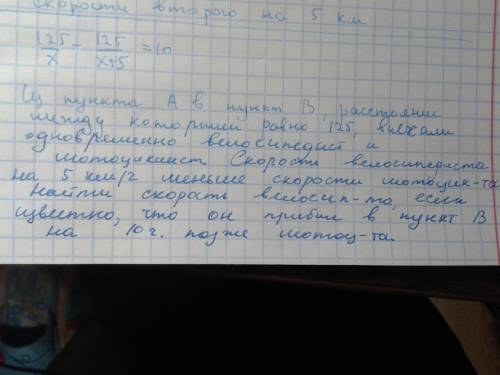 скорости второго на 5 км
125/x - 125/x+5 = 10
Из пункта А в пункт В, расстояние
между которыми равно 125, выехали
одновременно велосипедист и
мотоциклист. Скорость велосипедиста
на 5 км/г меньше скорости мотоцик-та
Найти скорость велосип-та, если
известно, что он прибыл в пункт В
на 10 ч. позже мотоц-та.